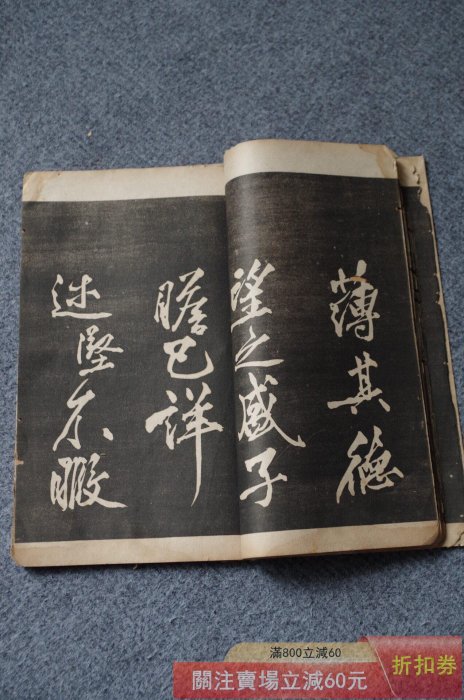 薄其德
望之盛子
瞻已詳
述堅不暇
滿800立減60
關注賣場立減60元
折扣券